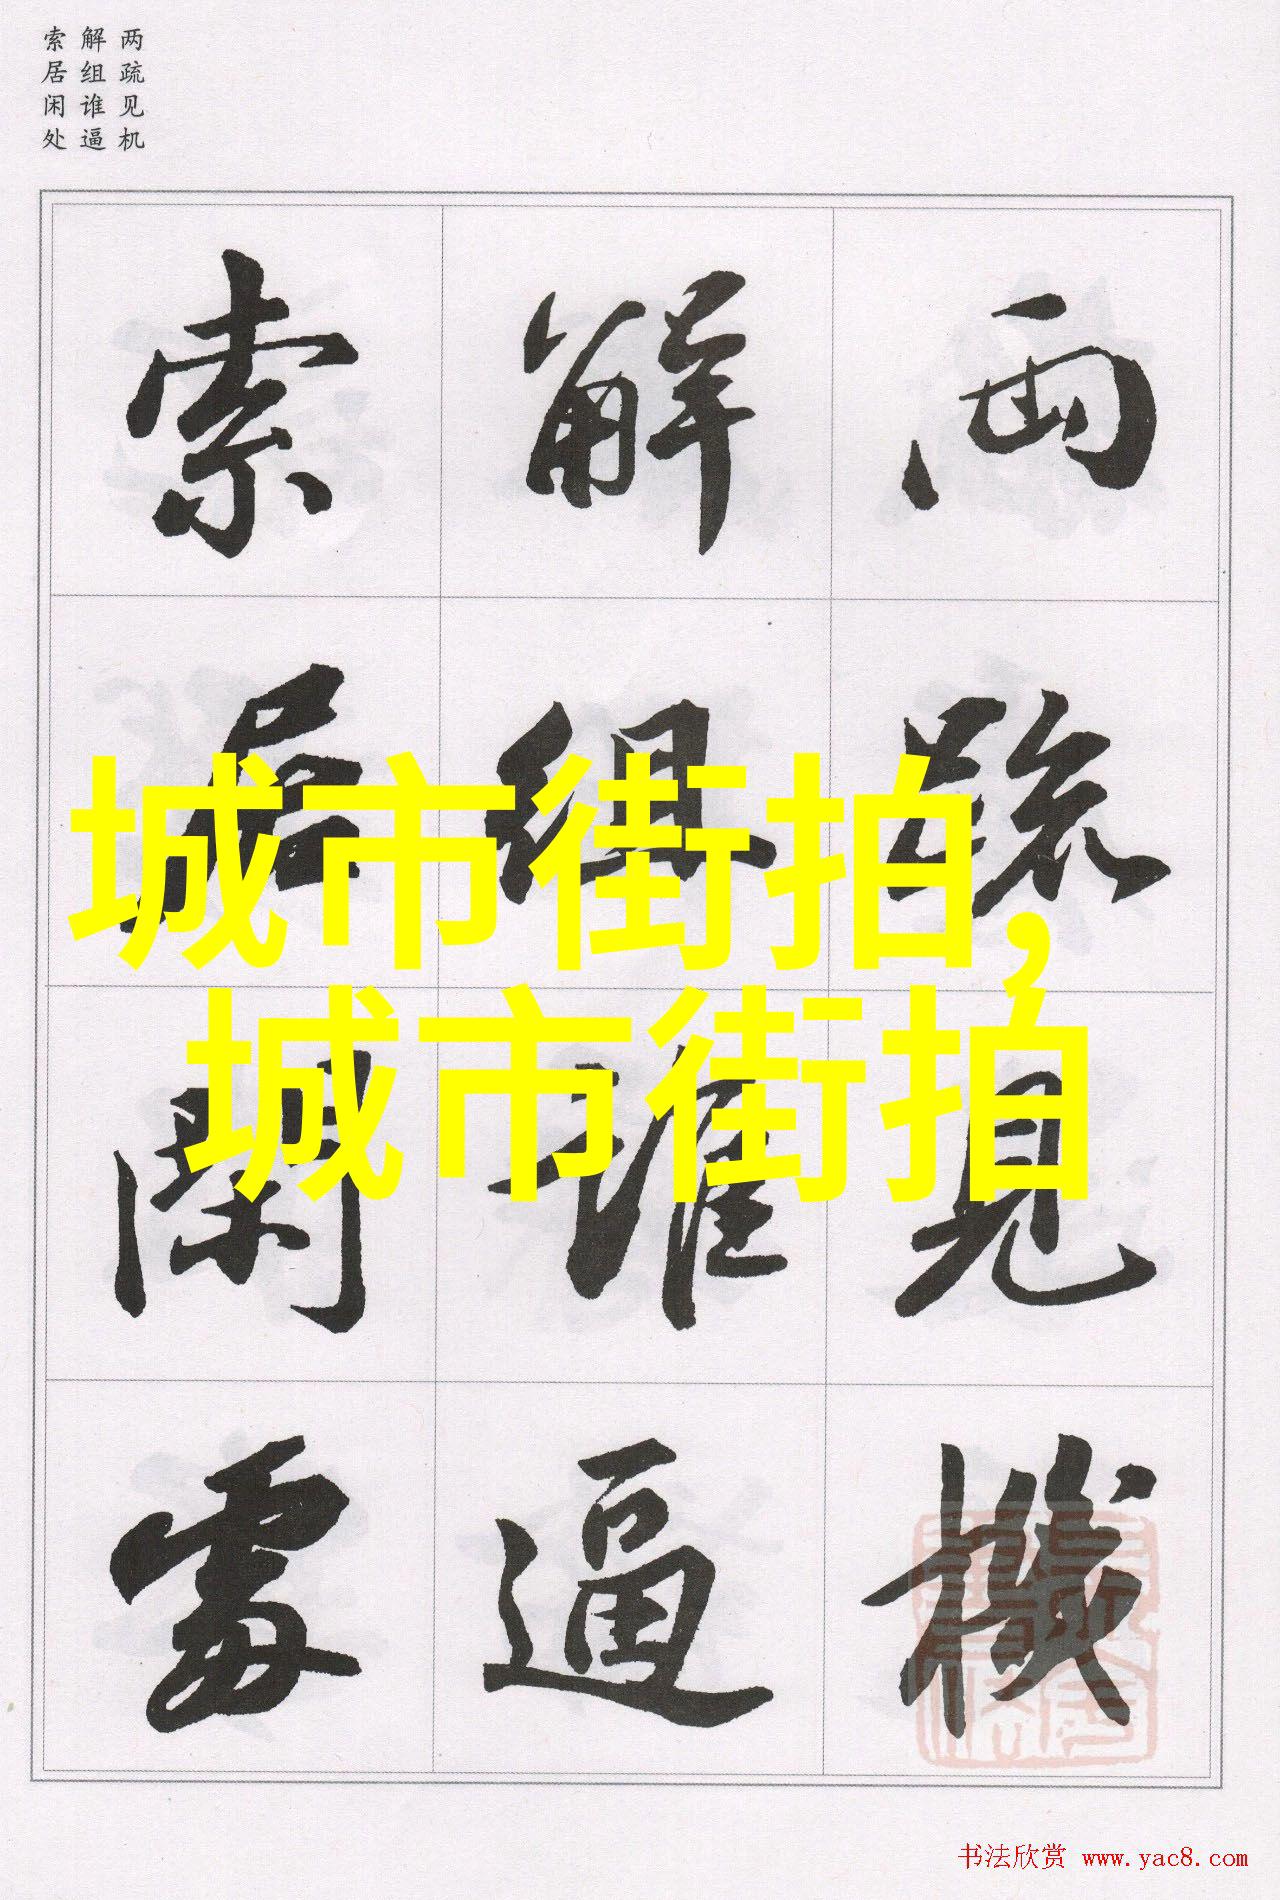 两疏见机
解组谁逼
索居闲处
两疏見機
解組誰逼
索居閑處
城市街拍,
城市街拍
书法欣赏 www.yac8.com